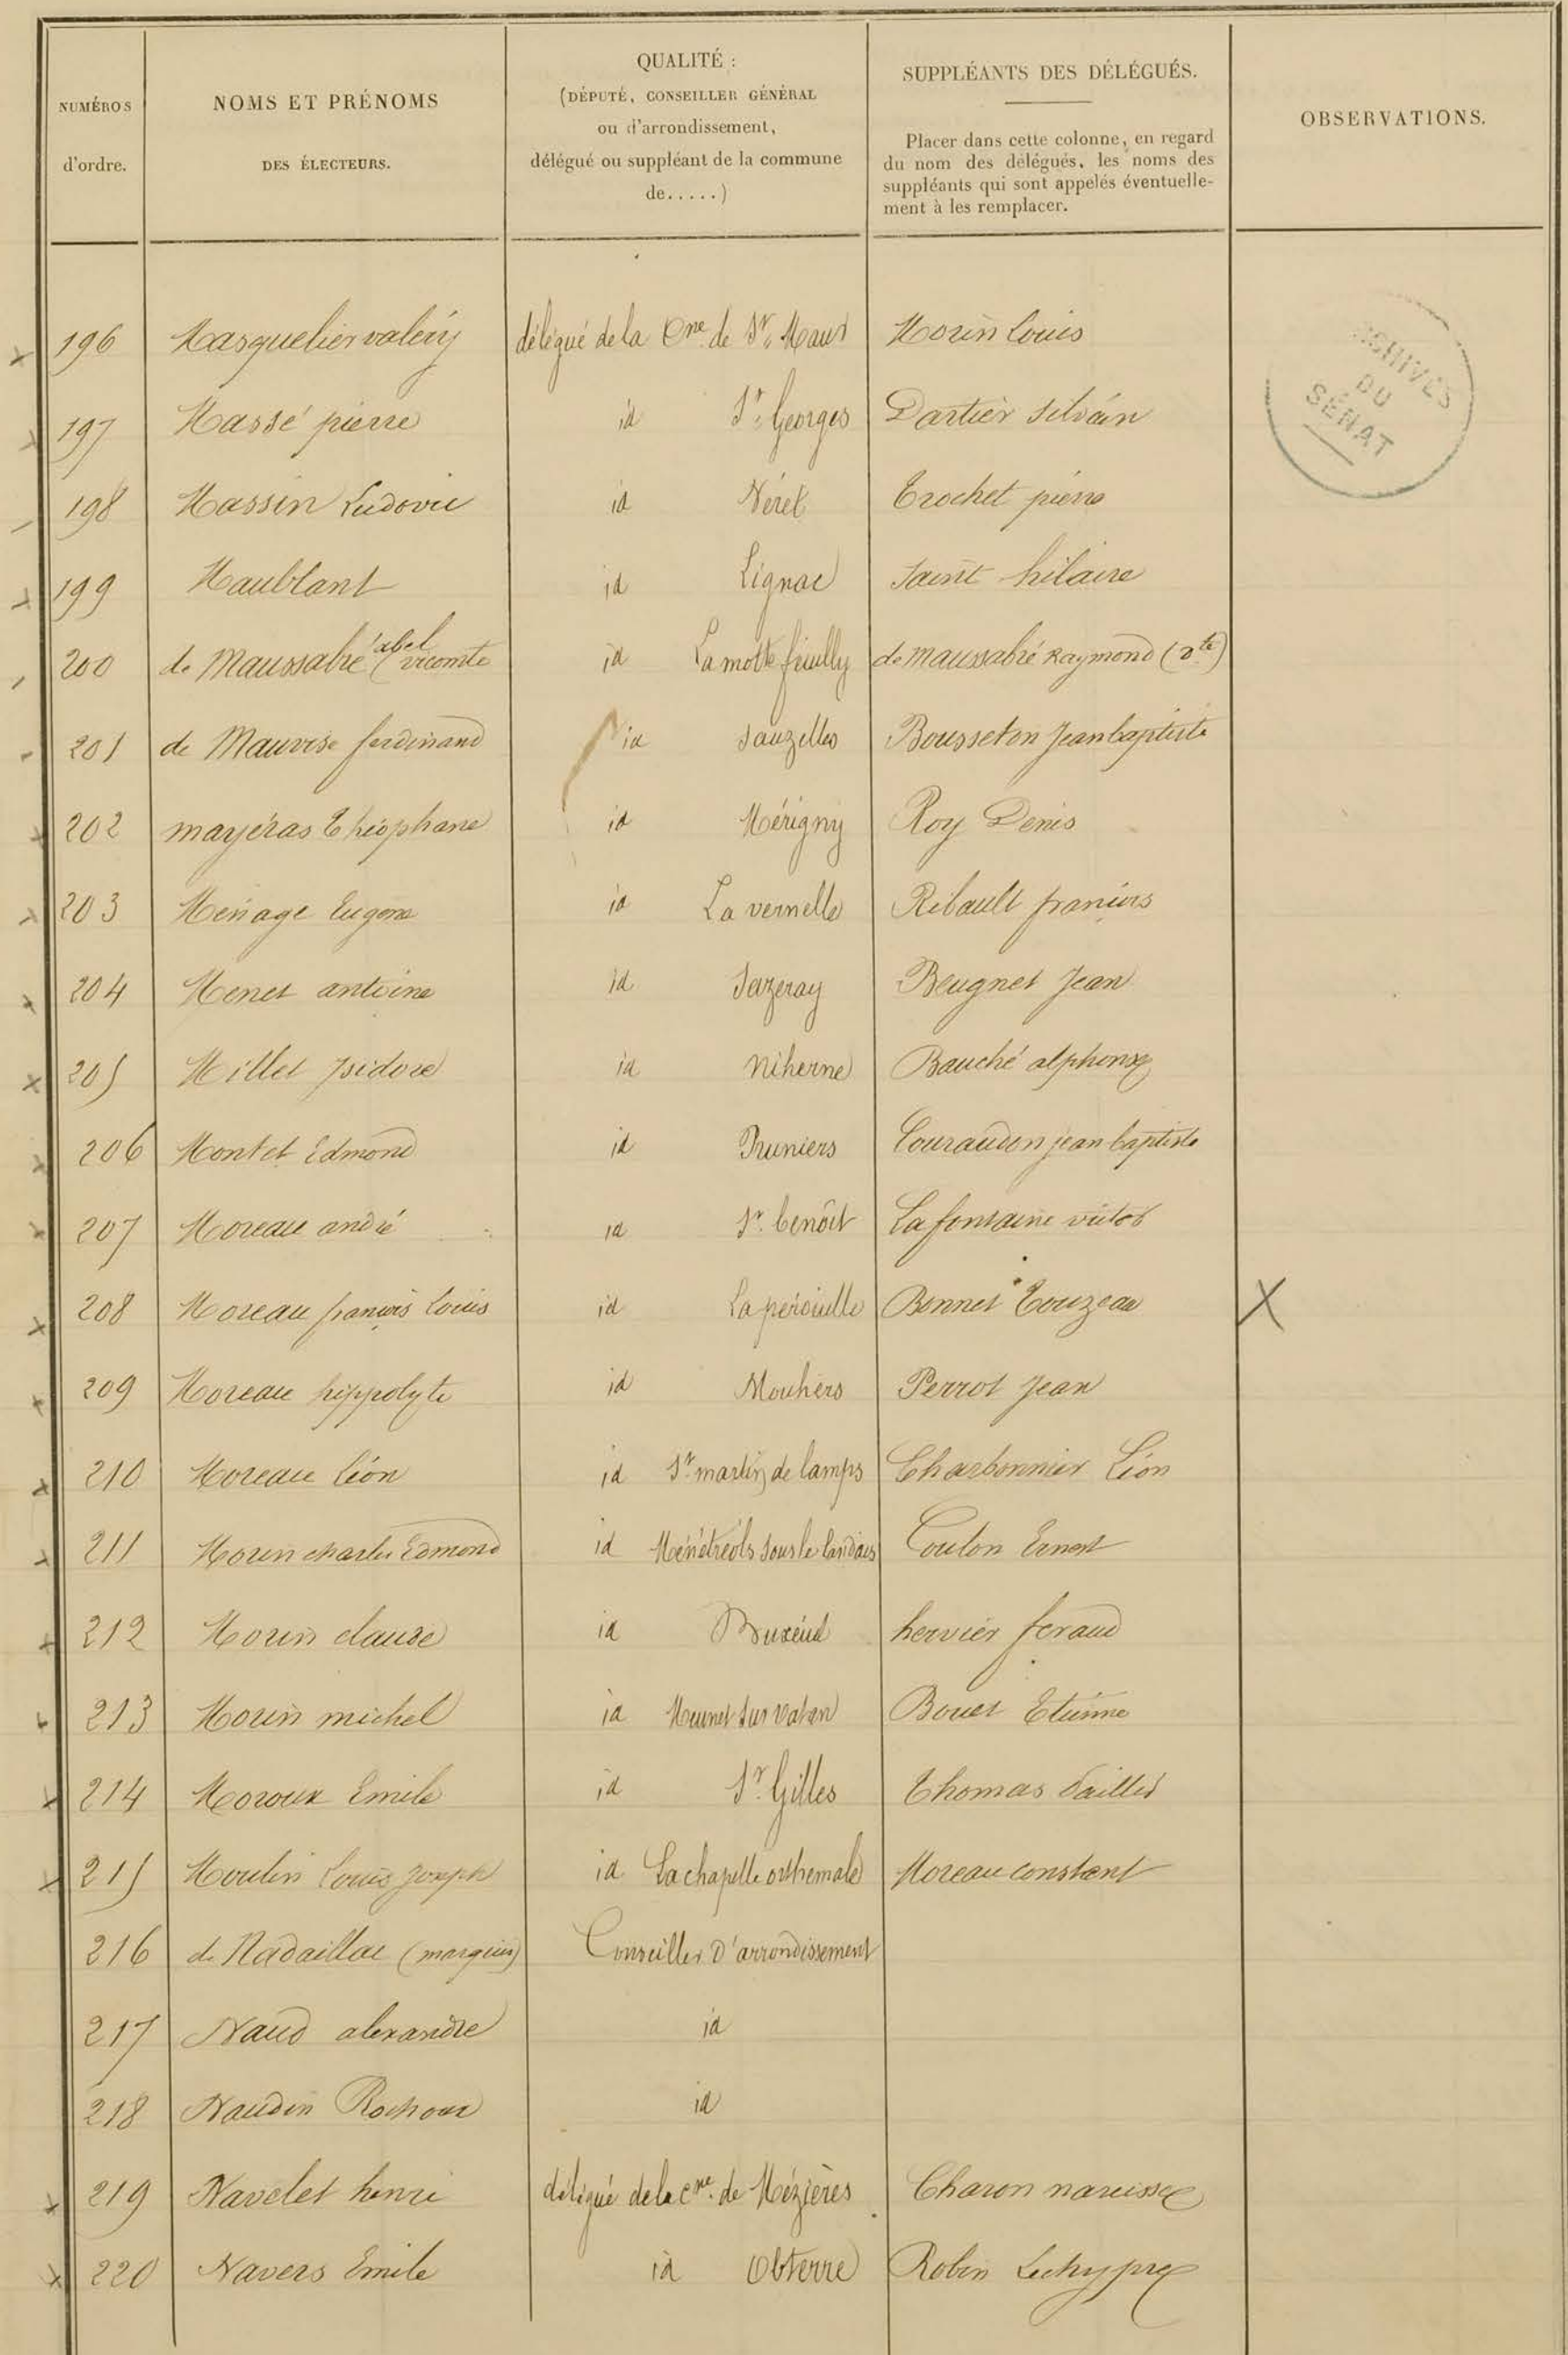 NUMÉROS d'ordre.
NOMS ET PRÉNOMS DES ÉLECTEURS.
QUALITÉ :
(DÉPUTÉ, CONSEILLER GÉNÉRAL
ou d'arrondissement,
délégué ou suppléant de la commune
de.....)
SUPPLÉANTS DES DÉLÉGUÉS.
Placer dans cette colonne, en regard
du nom des délégués, les noms des
suppléants qui sont appelés éventuelle-
ment à les remplacer.
OBSERVATIONS.
ARCHIVES
DU
SÉNAT
196 Masquelier valéry délégué de la Cne de St. Maur Morin louis
197 Massé pierre id St. Georges Dartier Silvain
198 Massin Ludovic id Néret Trochet pierre
199 Maublant id Lignac Saint hilaire
200 de Maussabré abel (vicomte id Lamotte feuilly de maussabré Raymond (Vte)
201 de Mauvise ferdinand id Sauzelles Bousseton Jean baptiste
202 mayéras Théophane id Mérigny Roy Denis
203 Ménage Eugene id La vernelle Ribault françois
204 Menet antoine id Sazeray Beugnet Jean
205 Millet Isidore id Niherne Bauché alphonse
206 Montet Edmond id Pruniers Couraudon jean baptiste
207 Moreau andré id St. benoît Lafontaine victor
208 Moreau françois louis id La pérouille Bonnet Touzeau X
209 Moreau hippolyte id Mouhers Perrot Jean
210 Moreau léon id St. martin de lamps Charbonnier Léon
211 Morin charles Edmond id Ménétréols sous le landais Couton Ernest
212 Morin claude id Buxeuil hervier feraud
213 Morin michel id Meunet sur Vatan Bouet Etienne
214 Moroux Emile id St. Gilles Thomas
215 Moulin Louis Joseph id La chapelle orthemale Moreau constant
216 de Nadaillac (marquis) Conseiller d'arrondissement
217 Naud alexandre id
218 Naudin Rochoux id
219 Navelet henri délégué de la cne. de Mézières Charon narcisse
220 Navers Emile id Obterre Robin